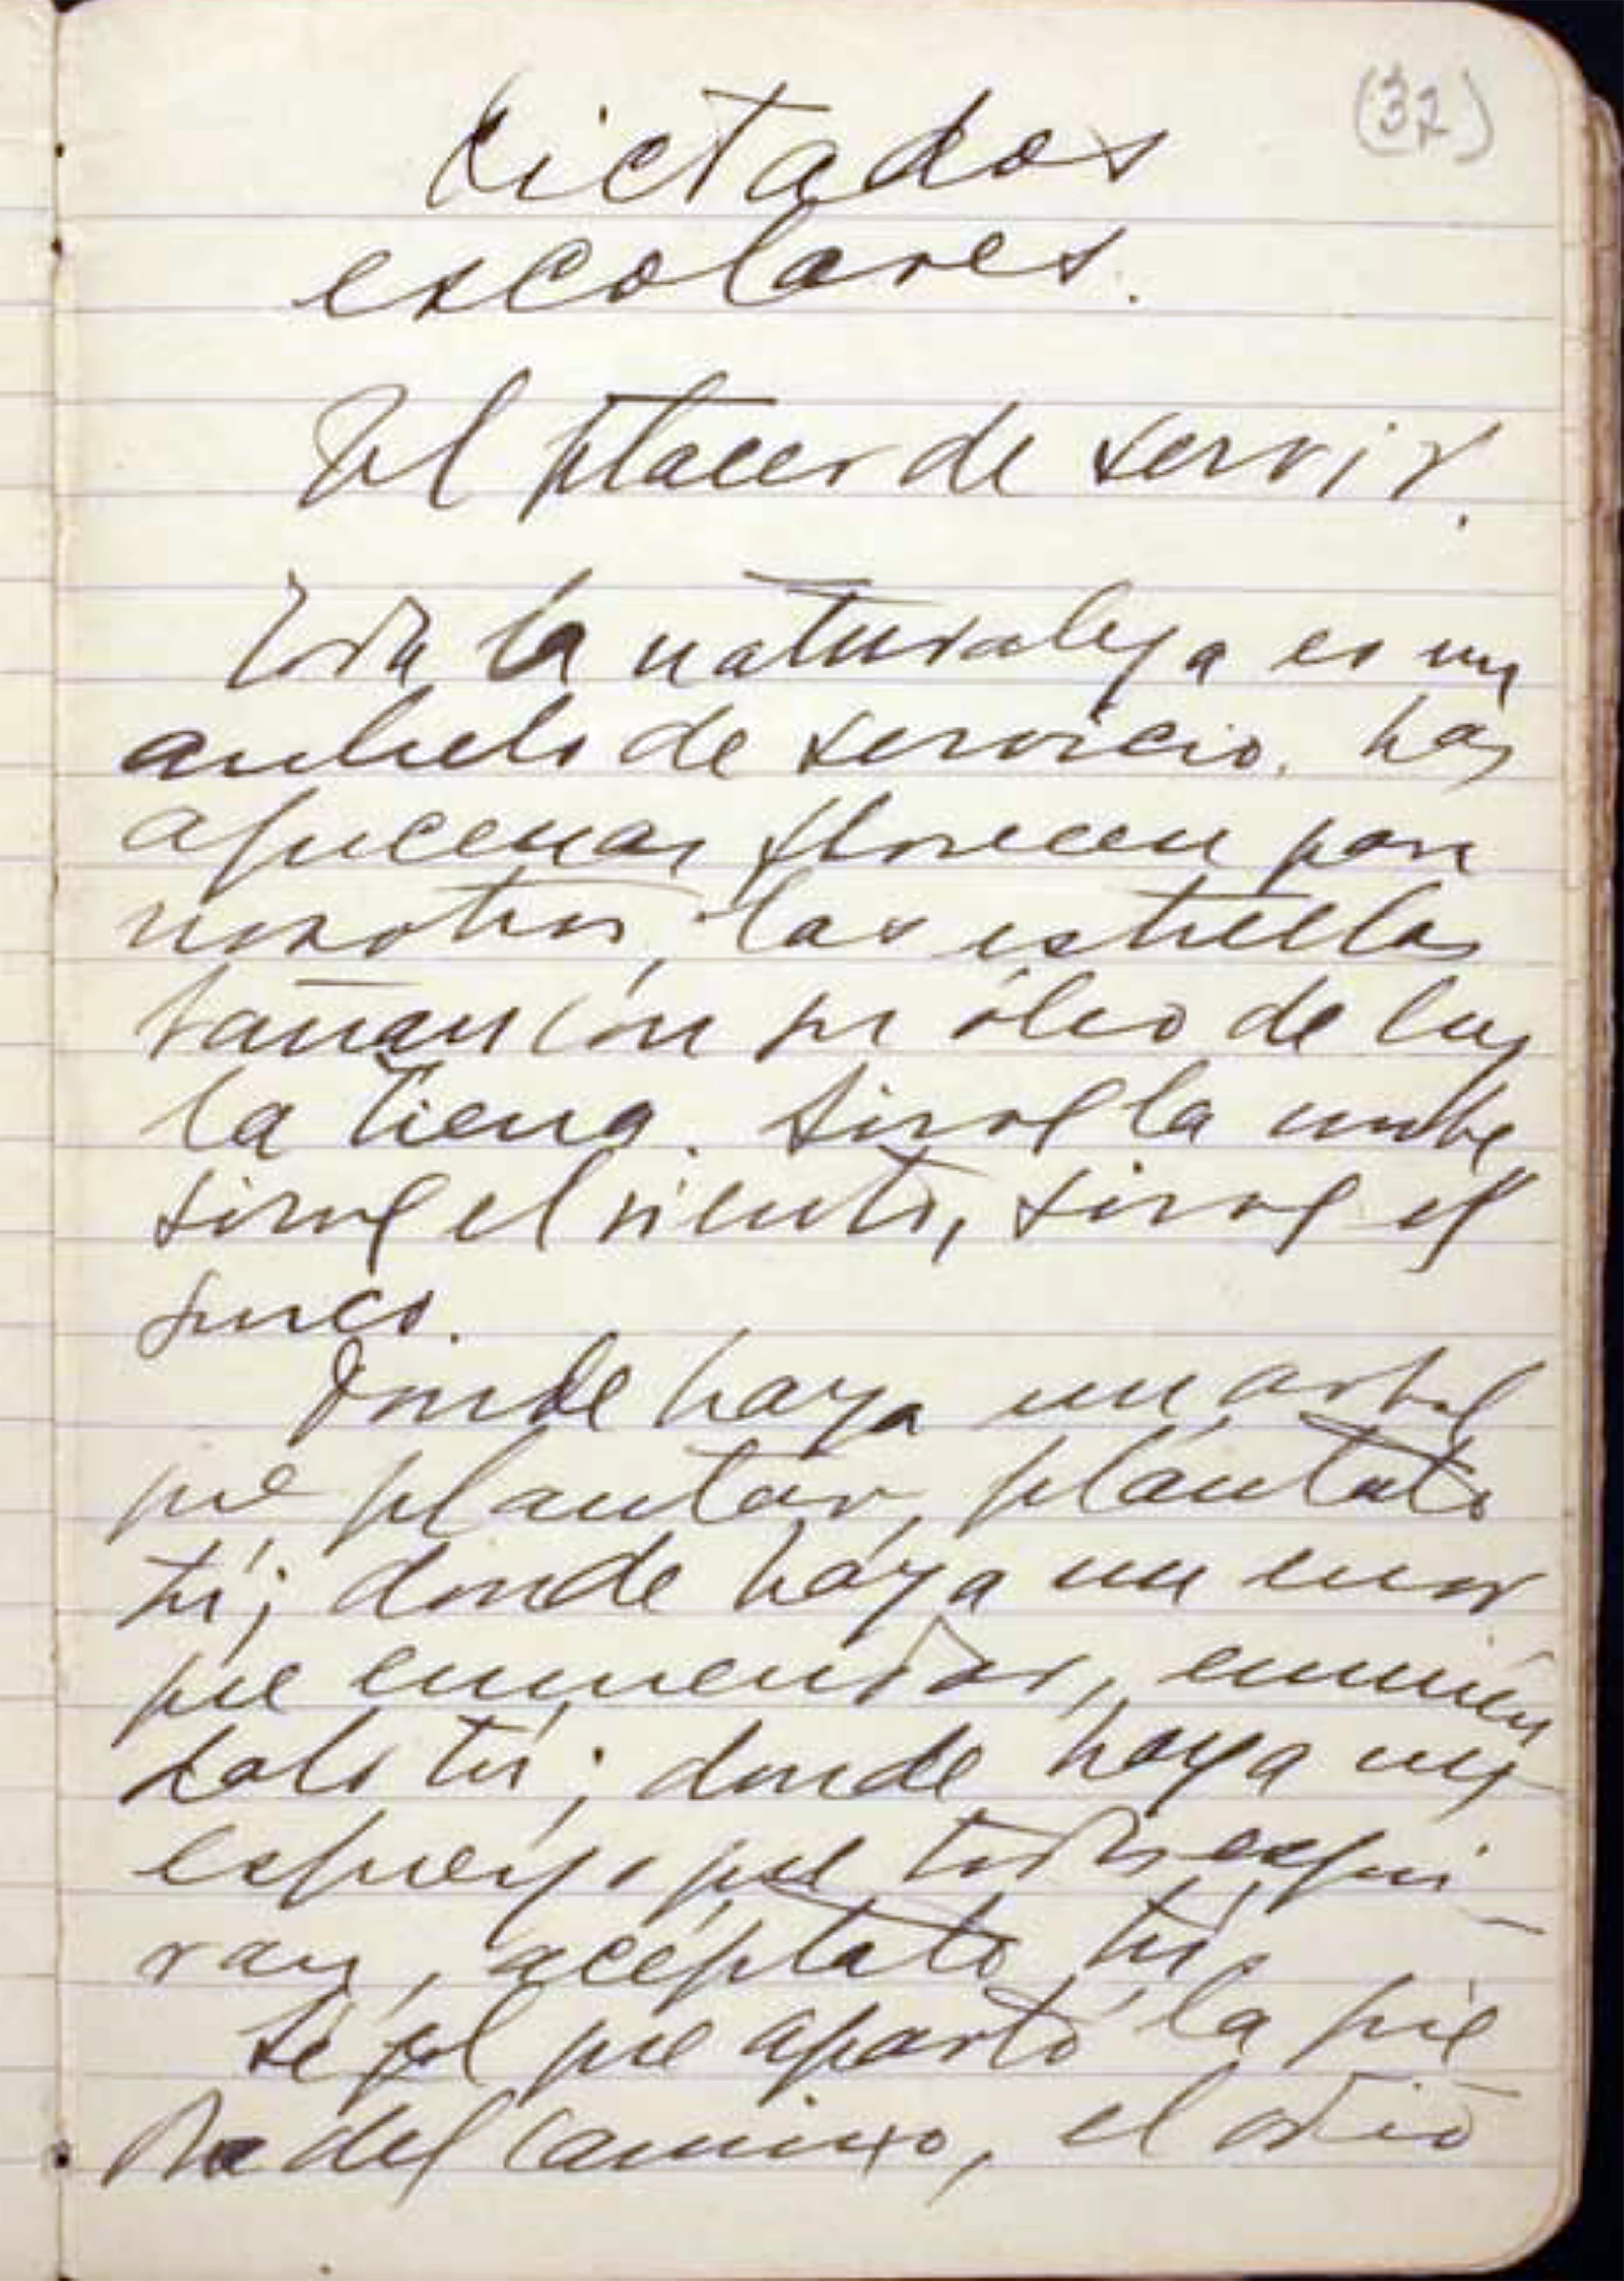 (37)
Dictados
escolares.
El placer de servir.
Toda la naturaleza es un
anhelo de servicio. Las
azucenas florecen para
nosotros, las estrellas
bañan con su óleo de luz
la tierra. Sirve la nube
sirve el viento, sirve el
surco.
Donde haya un arbol
que plantar, plántalo
tú; donde haya un error
que enmendar, enmién
dalo tú; donde haya un
esfuerzo que todos esqui-
van, acéptalo tú.
Sé el que apartó la pie
dra del camino, el odio